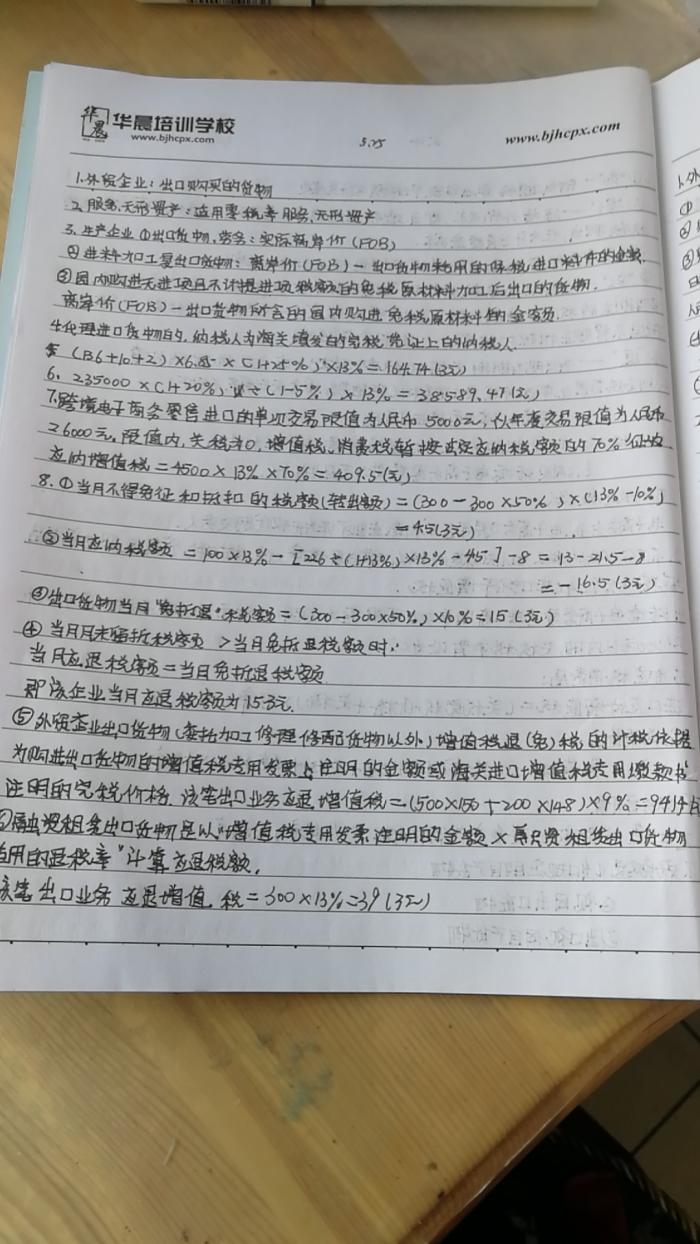 华晨
华晨培训学校
www.bjhcpx.com
5.25
www.bjhcpx.com
1.外贸企业：出口购买的货物
2.服务、无形资产：适用零税率服务、无形资产
3.生产企业①出口货物、劳务：实际离岸价(FOB)
②进料加工复出口货物：离岸价(FOB)-出口货物耗用的保税进口料件的金额.
③国内购进无进项且不计提进项税额的免税原材料加工后出口的货物.
离岸价(FOB)-出口货物所含的国内购进免税原材料的金额
4.代理进口货物的,纳税人为海关填发的完税凭证上的纳税人.
5 (136+10+2)×6.85×(1+25%)×13%=164.74(万元)
6. 235000×(1+20%)÷(1-5%)×13%=38589.47(元)
7.跨境电子商务零售进口的单次交易限值为人民币5000元,个人年度交易限值为人民币
26000元,限值内,关税为0,增值税、消费税暂按法定应纳税额的70%征收
应纳增值税=4500×13%×70%=409.5(元)
8.①当月不得免征和抵扣的税额(转出额)=(300-300×50%)×(13%-10%)
=4.5(万元)
②当月应纳税额=100×13%-[226÷(1+13%)×13%-4.5]-8=13-21.5-8
=-16.5(万元)
③出口货物当月"免抵退"税额=(300-300×50%)×10%=15(万元)
④当月月末留抵税额>当月免抵退税额时.
当月应退税额=当月免抵退税额
即该企业当月应退税额为15万元.
⑤外贸企业出口货物(委托加工修理修配货物以外)增值税退(免)税的计税依据
为购进出口货物的增值税专用发票上注明的金额或海关进口增值税专用缴款书
注明的完税价格.该笔出口业务应退增值税=(500×150+200×148)×9%=9414元
用的退税率"计算应退税额.
该笔出口业务应退增值税=300×13%=39(万元)